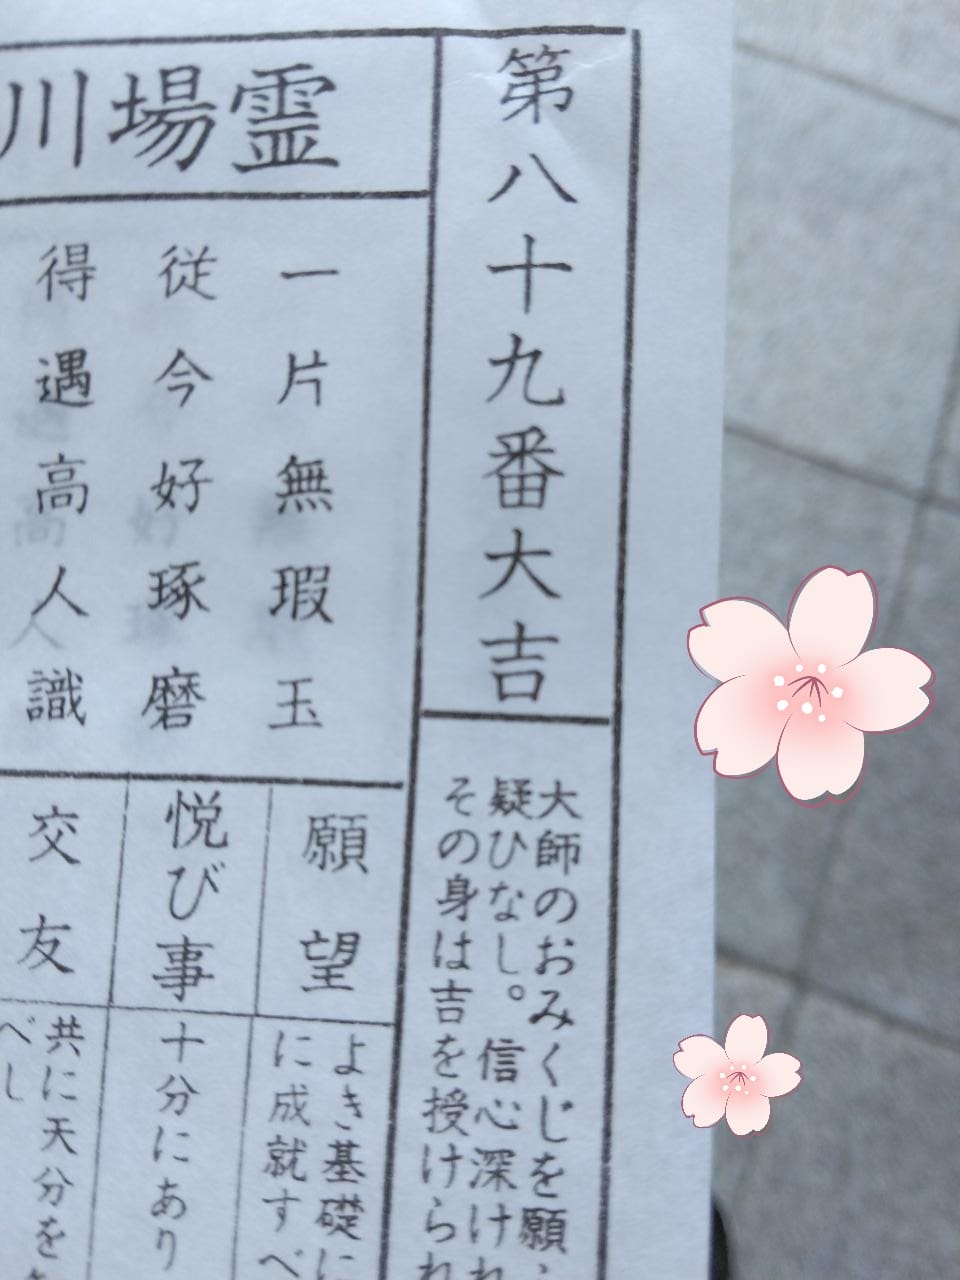 第八十九番大吉
大師のおみくじを願
疑ひなし。信心深けれ
その身は吉を授けられ
霊場川
一片無瑕玉
従今好琢磨
得遇高人識
願望
よき基礎に
に成就すべ
悦び事
十分にあり
交友
共に天分を
べし